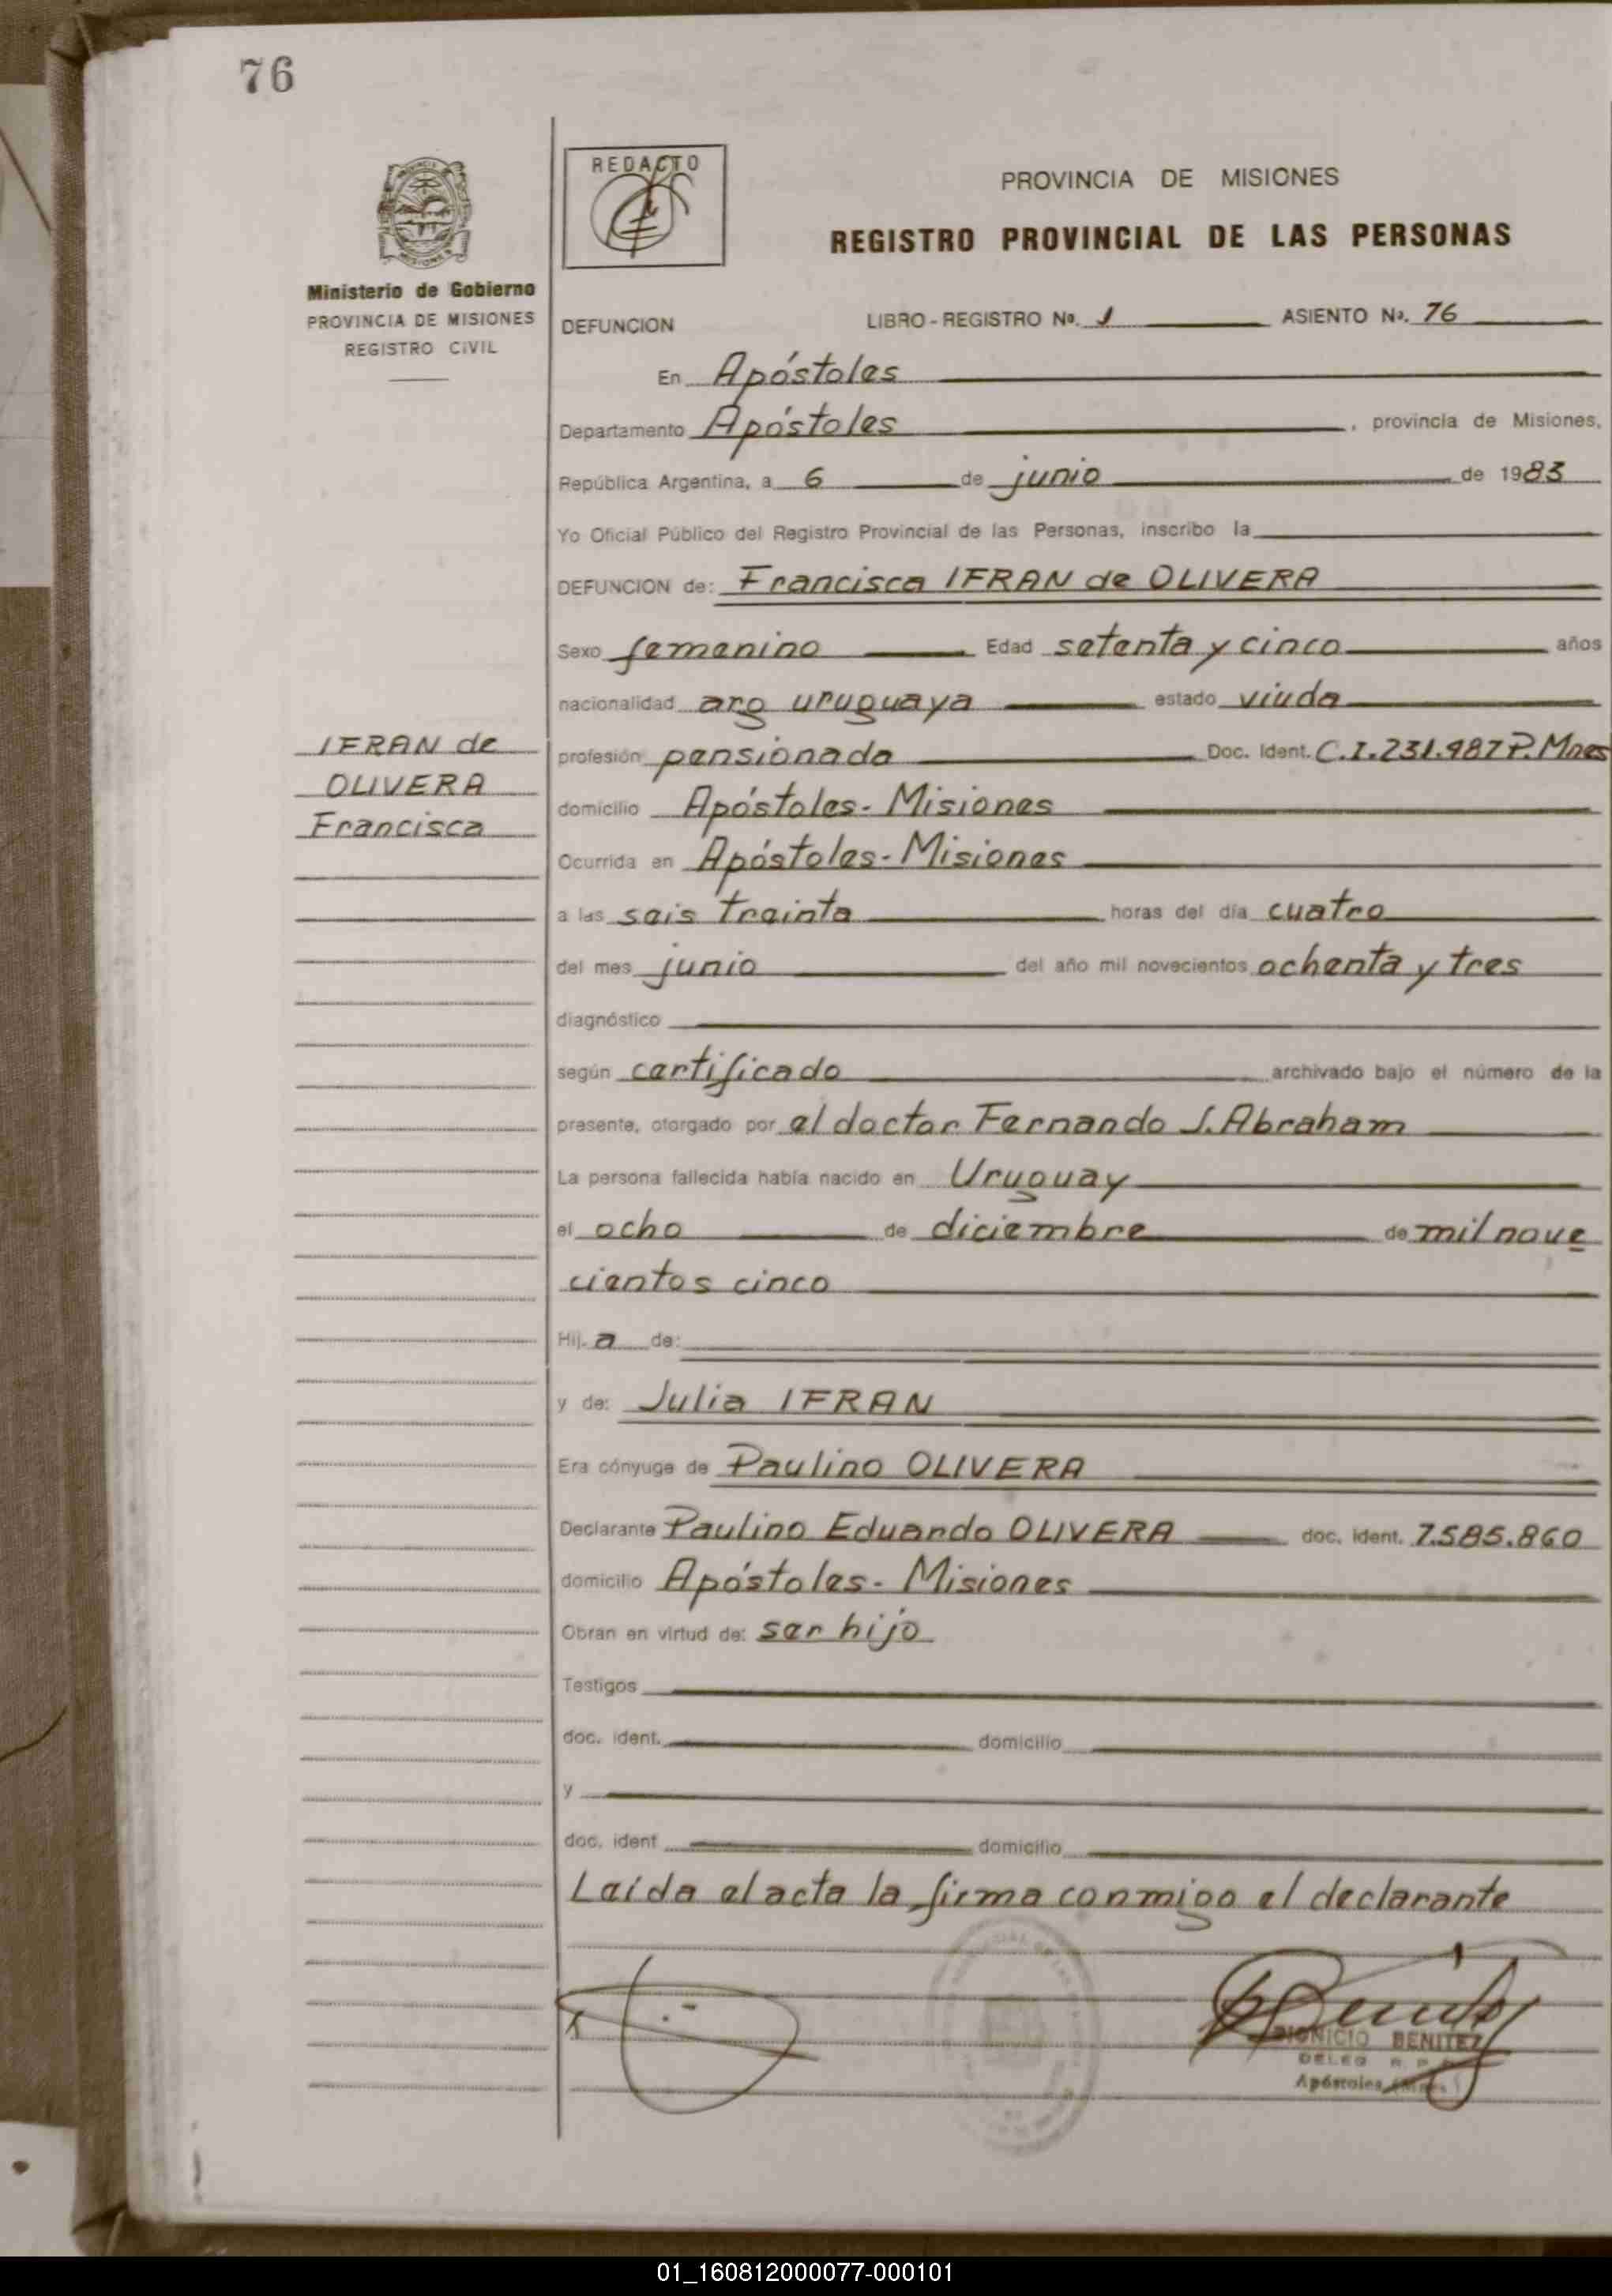 76
REDACTO
Ministerio de Gobierno
PROVINCIA DE MISIONES
REGISTRO CIVIL
PROVINCIA DE MISIONES
REGISTRO PROVINCIAL DE LAS PERSONAS
DEFUNCION LIBRO - REGISTRO Nº. 1 ASIENTO Nº. 76
En Apóstoles
Departamento Apóstoles, provincia de Misiones,
República Argentina, a 6 de junio de 1983
Yo Oficial Público del Registro Provincial de las Personas, inscribo la
DEFUNCION de: Francisca IFRAN de OLIVERA
Sexo femenino Edad setenta y cinco años
nacionalidad arg uruguaya estado viuda
profesión pensionada Doc. Ident. C.I.231.987 P.Mnes
domicilio Apóstoles - Misiones
Ocurrida en Apóstoles - Misiones
a las seis treinta horas del día cuatro
del mes junio del año mil novecientos ochenta y tres
diagnóstico
según certificado archivado bajo el número de la
presente, otorgado por el doctor Fernando J. Abraham
La persona fallecida había nacido en Uruguay
el ocho de diciembre de mil nove
cientos cinco
Hij. a de:
y de: Julia IFRAN
Era cónyuge de Paulino OLIVERA
Declarante Paulino Eduardo OLIVERA doc. ident. 7.585.860
domicilio Apóstoles - Misiones
Obran en virtud de: ser hijo
Testigos
doc. ident. domicilio
y
doc. ident domicilio
Leída el acta la firma conmigo el declarante
IFRAN de
OLIVERA
Francisca
DIONICIO BENITEZ
DELEG R. P.
Apóstoles (Mnes)
01_160812000077-000101